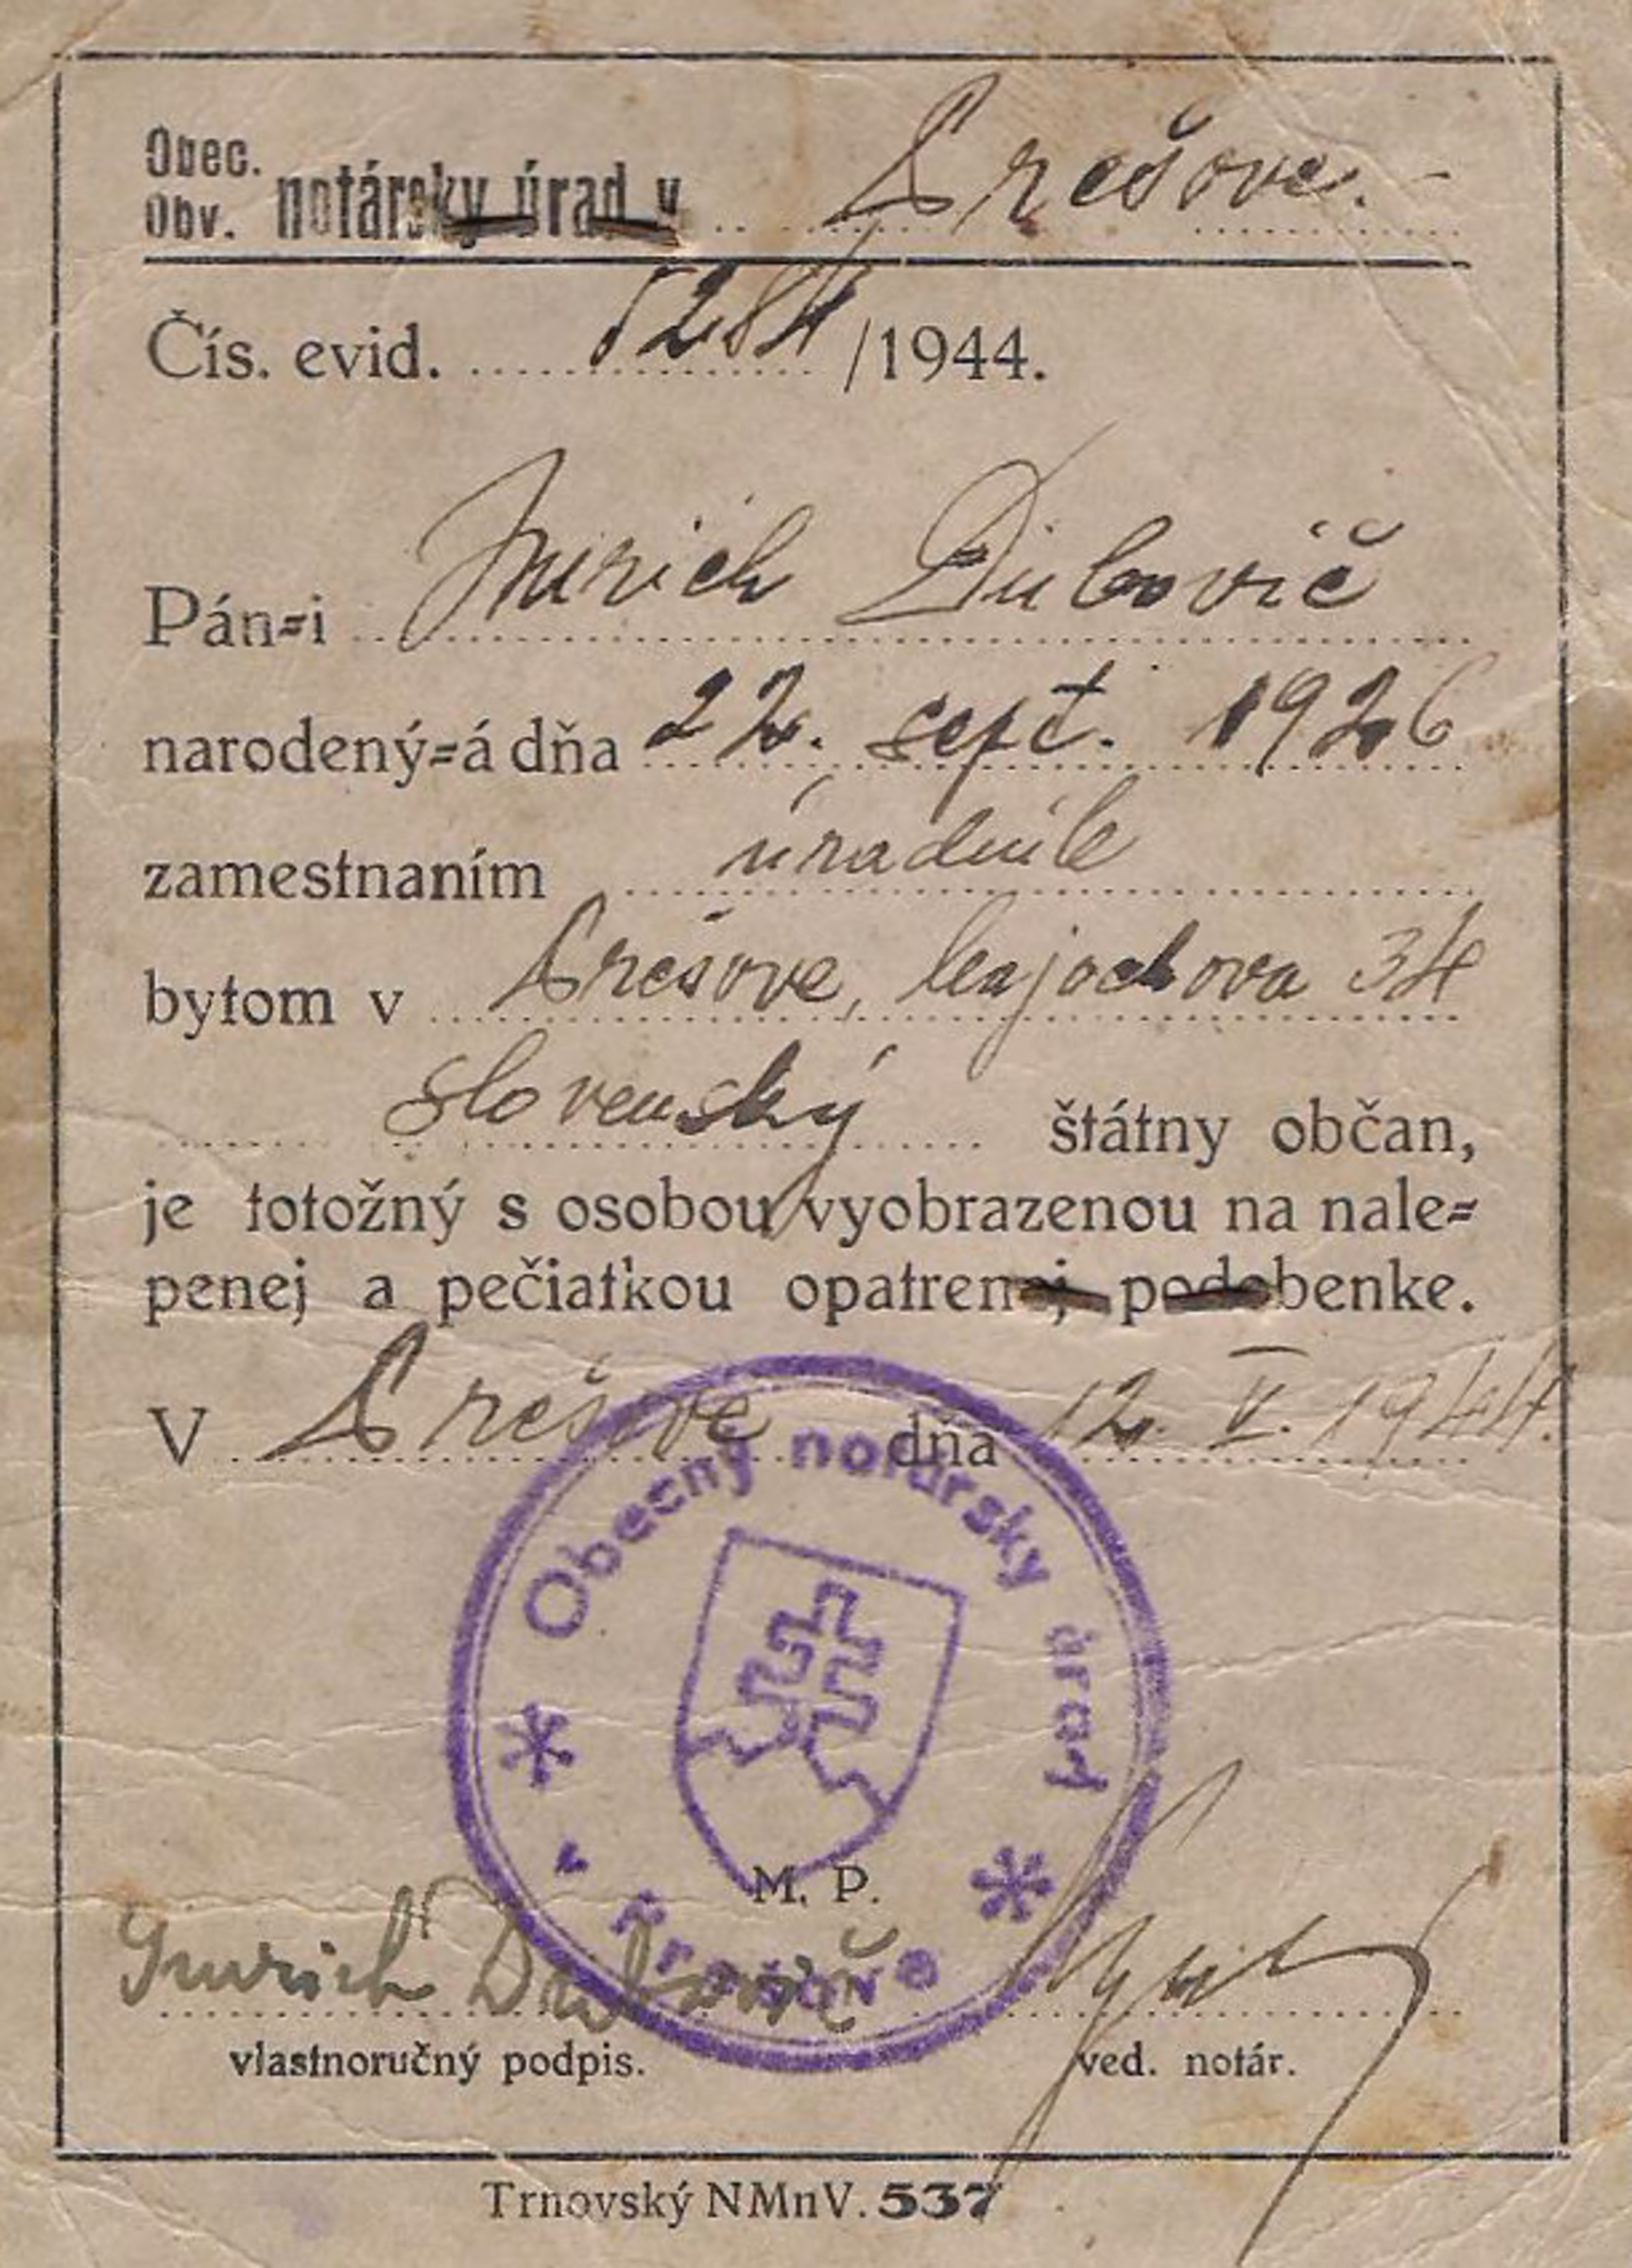 Obec.
Obv. notársky úrad v Prešove.-
Čís. evid. 5284/1944.
Pán=i Imrich Dubovič
narodený=á dňa 22. sept. 1926
zamestnaním úradník
bytom v Prešove, 34
slovenský štátny občan,
je totožný s osobou vyobrazenou na nale=
penej a pečiatkou opatrenej podobenke.
V Prešove dňa 12. V. 1944.
Obecný notársky úrad
v Prešove
M. P.
Imrich Dubovič
vlastnoručný podpis. ved. notár.
Trnovský NMnV. 537